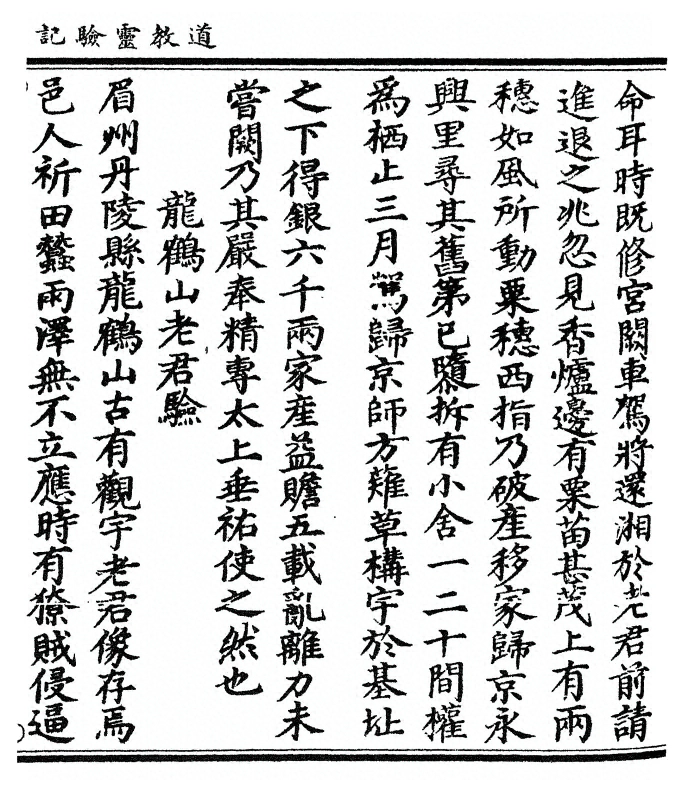 道教靈驗記
命耳時既修宮闕車駕將還湘於老君前請
進退之兆忽見香爐邊有粟苗甚茂上有兩
穗如風所動粟穗西指乃破產移家歸京永
興里尋其舊第已隳拆有小舍一二十間權
為栖止三月駕歸京師方薙草構宇於基址
之下得銀六千兩家産益贍五載亂離力未
嘗闕乃其嚴奉精專太上垂祐使之然也
龍鶴山老君驗
眉州丹陵縣龍鶴山古有觀宇老君像存焉
邑人祈田蠶雨澤無不立應時有獠賊侵逼